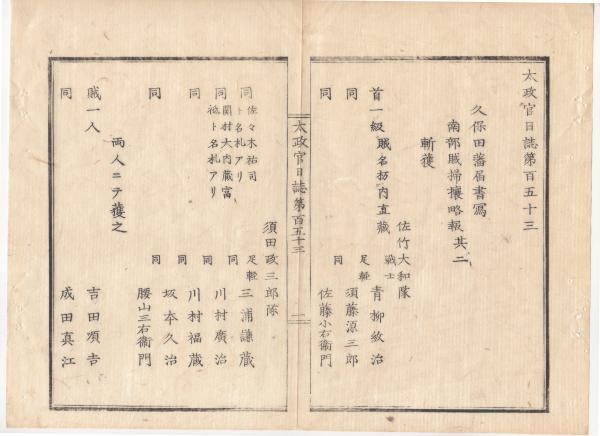 太政官日誌第百五十三
久保田藩届書寫
南部賊掃攘略報其二
斬獲
佐竹大和隊
首一級 賊名坊内直藏 戰士 青柳敛治
同 足輕 須藤源三郎
同 同 佐藤小右衞門
太政官日誌第百五十三 一
須田政三郎隊
同 佐々木祐司ト名札アリ 足輕 三浦謙藏
同 関村大内藏富祗ト名札アリ 同 川村廣治
同 同 川村福藏
同 坂本久治
同 同 腰山三右衞門
兩人ニテ獲之
賊一人 吉田頌吉
同 成田真江